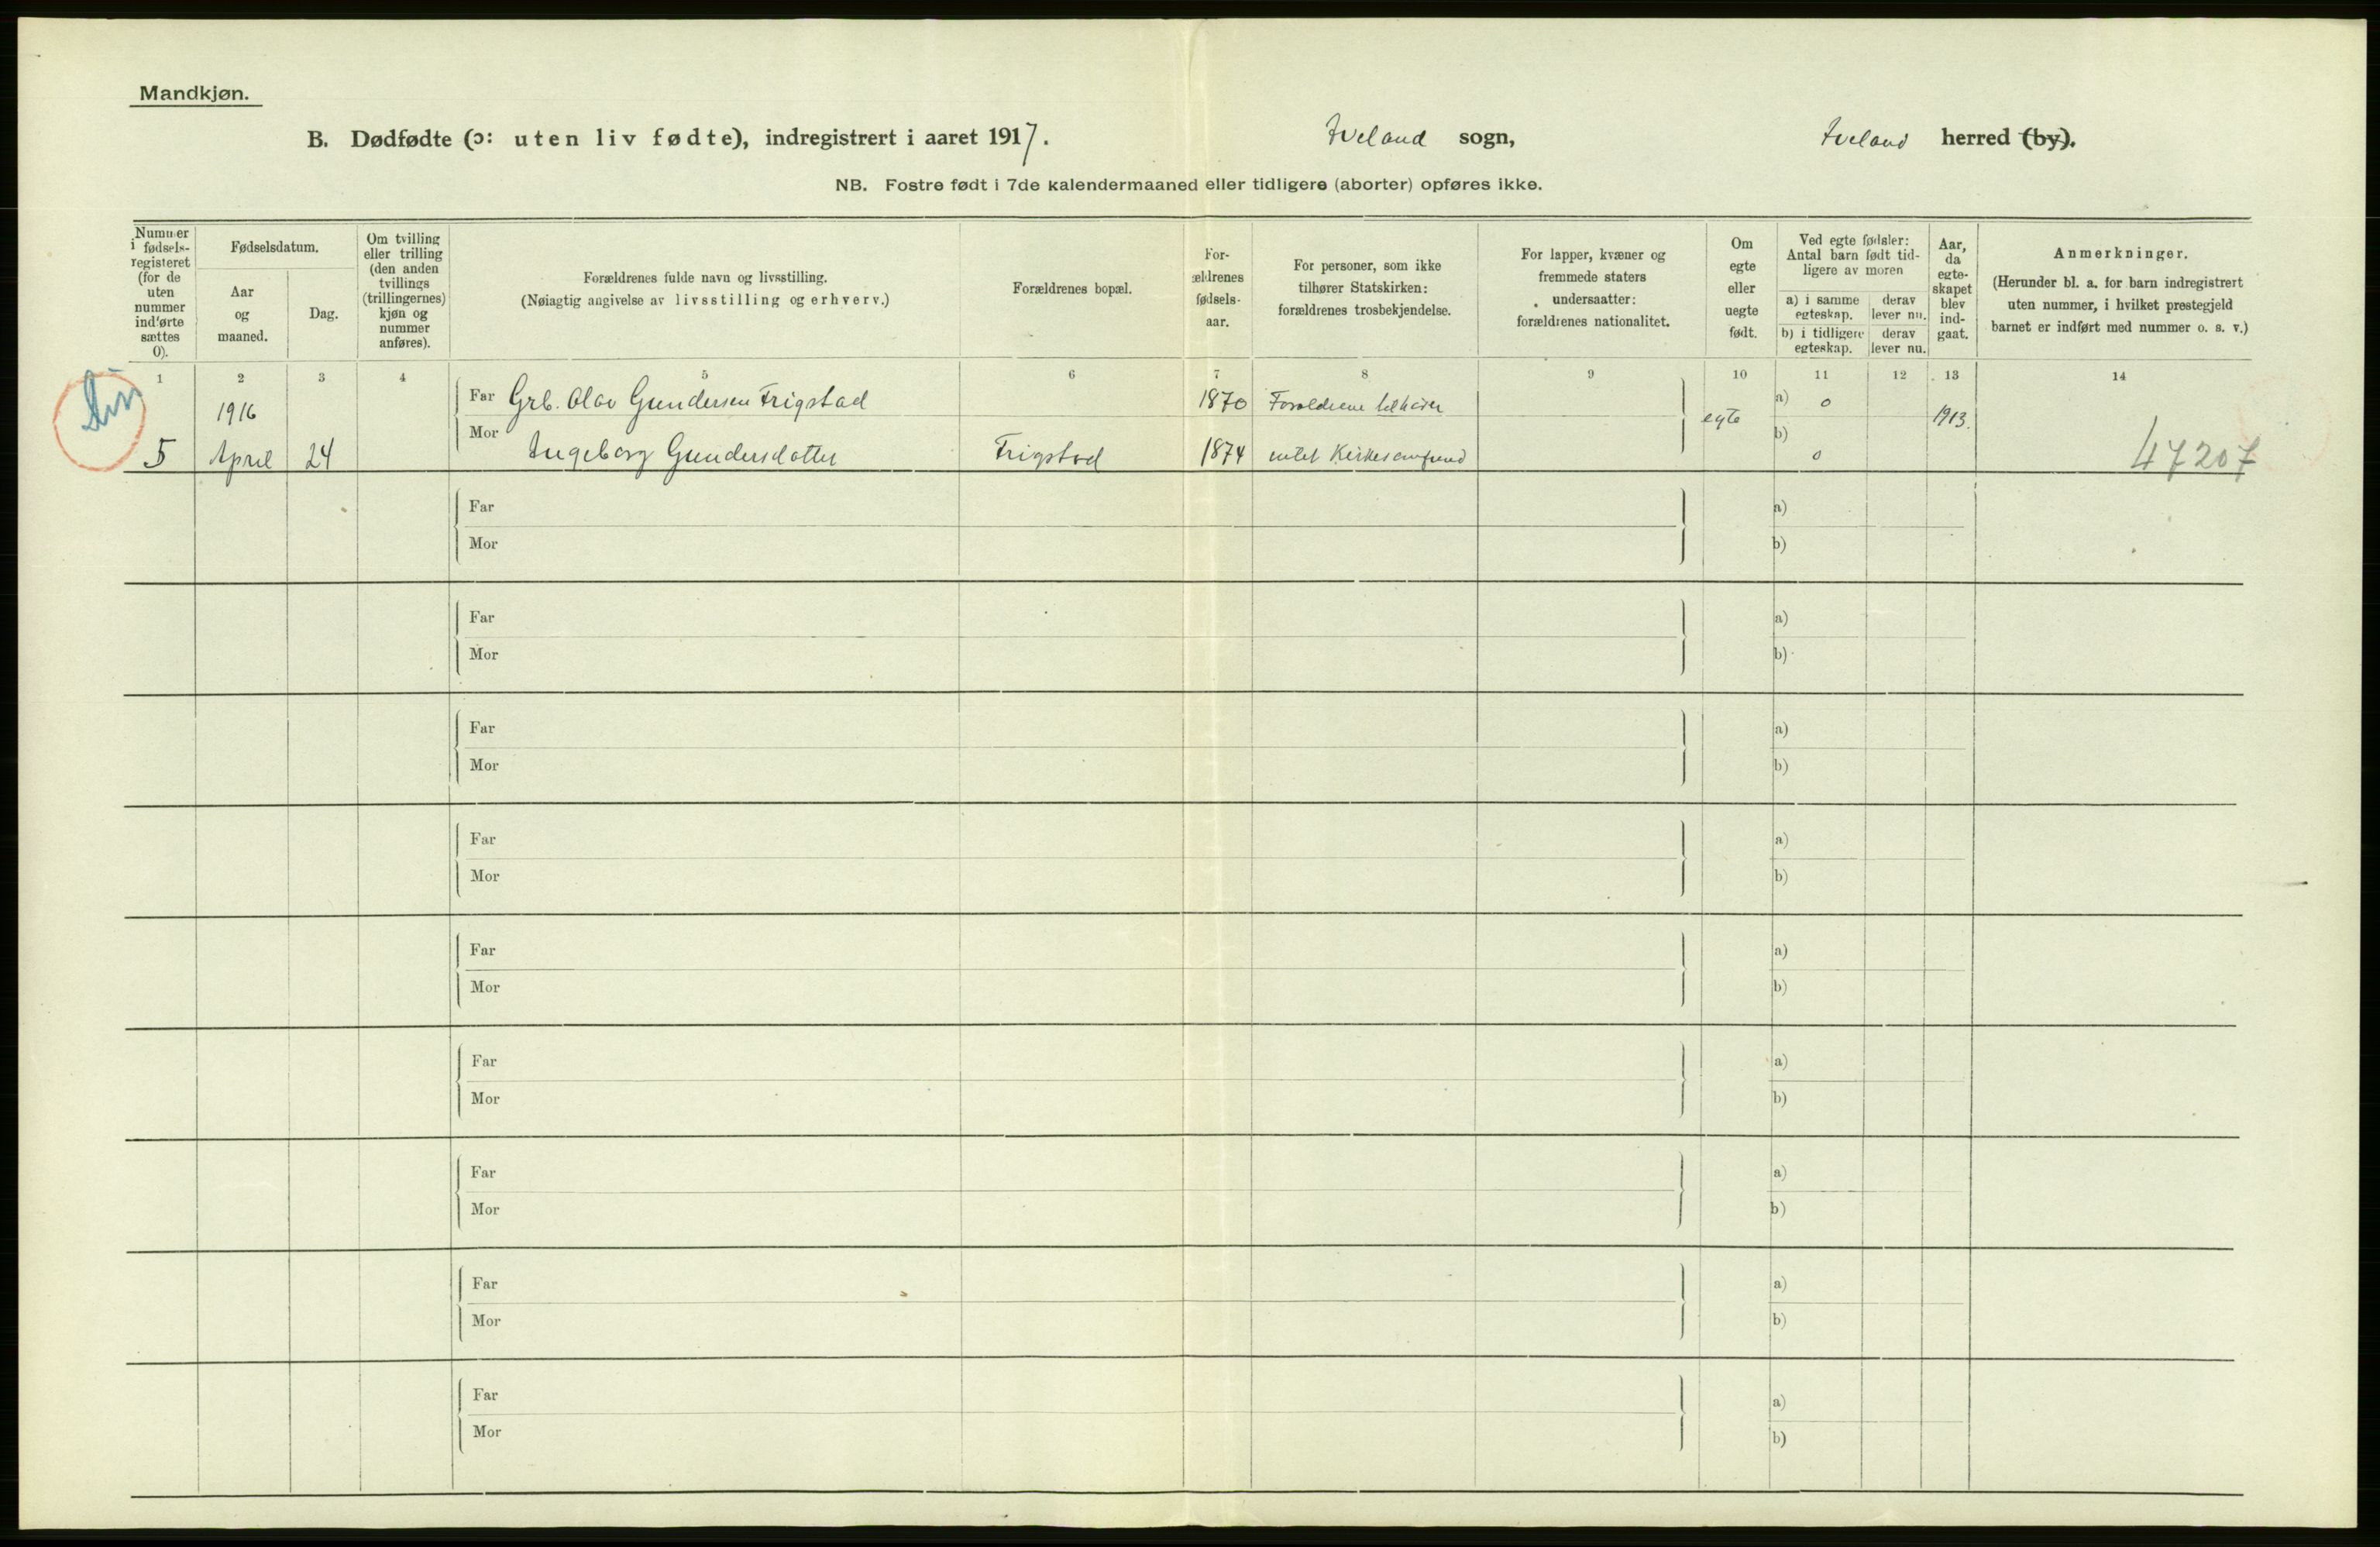 Mandkjøn.
B. Dødfødte (ɔ: uten liv fødte), indregistrert i aaret 1917. Iveland sogn, Iveland herred (by).
NB. Fostre født i 7de kalendermaaned eller tidligere (aborter) opføres ikke.
Nummer i fødsels-registeret (for de uten nummer indførte sættes 0).
Fødselsdatum.
Aar og maaned.
Dag.
Om tvilling eller trilling (den anden tvillings (trillingernes) kjøn og nummer anføres).
Forældrenes fulde navn og livsstilling.
(Nøiagtig angivelse av livsstilling og erhverv.)
Forældrenes bopæl.
For-ældrenes fødsels-aar.
For personer, som ikke tilhører Statskirken: forældrenes trosbekjendelse.
For lapper, kvæner og fremmede staters undersaatter: forældrenes nationalitet.
Om egte eller uegte født.
Ved egte fødsler: Antal barn født tid-ligere av moren
a) i samme egteskap. derav lever nu.
b) i tidligere egteskap. derav lever nu.
Aar, da egte-skapet blev ind-gaat.
Anmerkninger.
(Herunder bl. a. for barn indregistrert uten nummer, i hvilket prestegjeld barnet er indført med nummer o. s. v.)
1 2 3 4 5 6 7 8 9 10 11 12 13 14
1916 Far Grb. Olav Gundersen Frigstad 1870 Forældrene tilhører egte a) 0 1913.
5 April 24 Mor Ingeborg Gundersdatter Frigstad 1874 intet Kirkesamfund b) 0 47207
Far a)
Mor b)
Far a)
Mor b)
Far a)
Mor b)
Far a)
Mor b)
Far a)
Mor b)
Far a)
Mor b)
Far a)
Mor b)
Far a)
Mor b)
Far a)
Mor b)